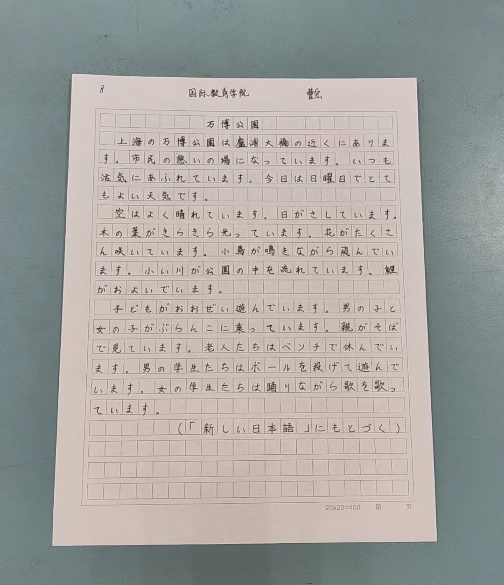 8 国际教育学院 曹宏
万博公園
上海の万博公園は盧浦大橋の近くにありま
す。市民の憩いの場になっています。いつも
活気にあふれています。今日は日曜日でとて
もよい天気です。
空はよく晴れています。日がさしています。
木の葉がきらきら光っています。花がたくさ
ん咲いています。小鳥が鳴きながら飛んでい
ます。小い川が公園の中を流れています。鯉
がおよいでいます。
子どもがおおぜい遊んでいます。男の子と
女の子がぶらんこに乗っています。親がそば
で見ています。老人たちはベンチで休んでい
ます。男の学生たちはボールを投げて遊んで
います。女の学生たちは踊りながら歌を歌っ
ています。
(「新しい日本語」にもとづく)
20x20=400 第 页